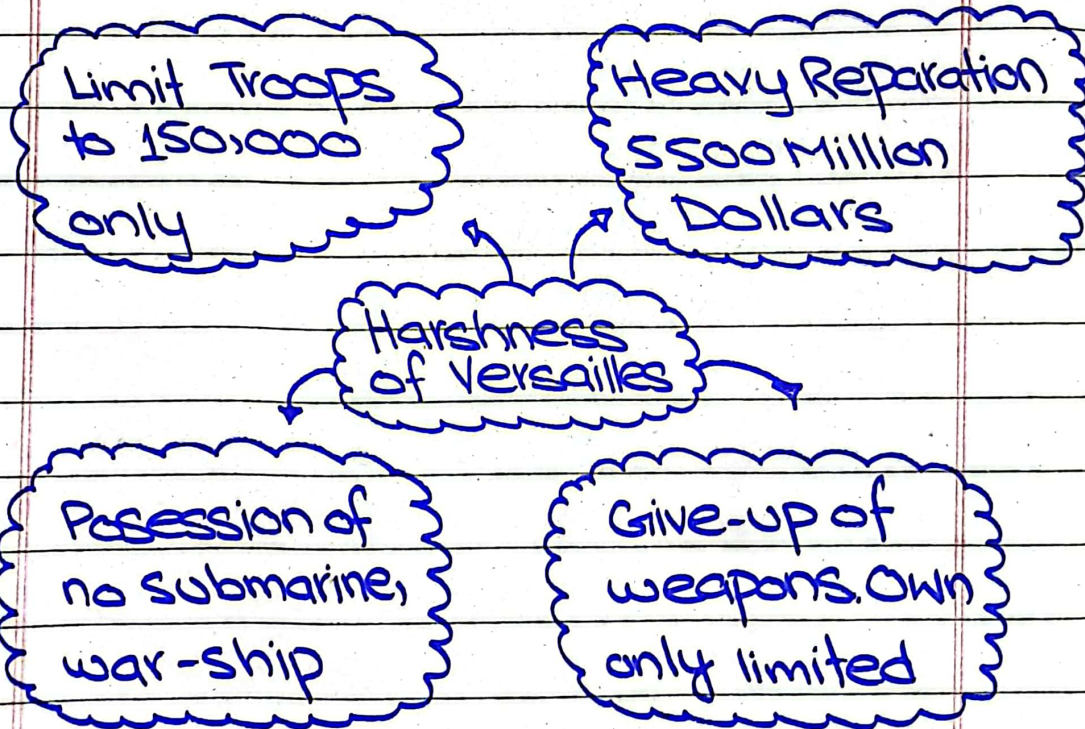 Limit Troops
to 150,000
only
Heavy Reparation
5500 Million
Dollars
Harshness
of Versailles
Posession of
no submarine,
war-ship
Give-up of
weapons. Own
only limited